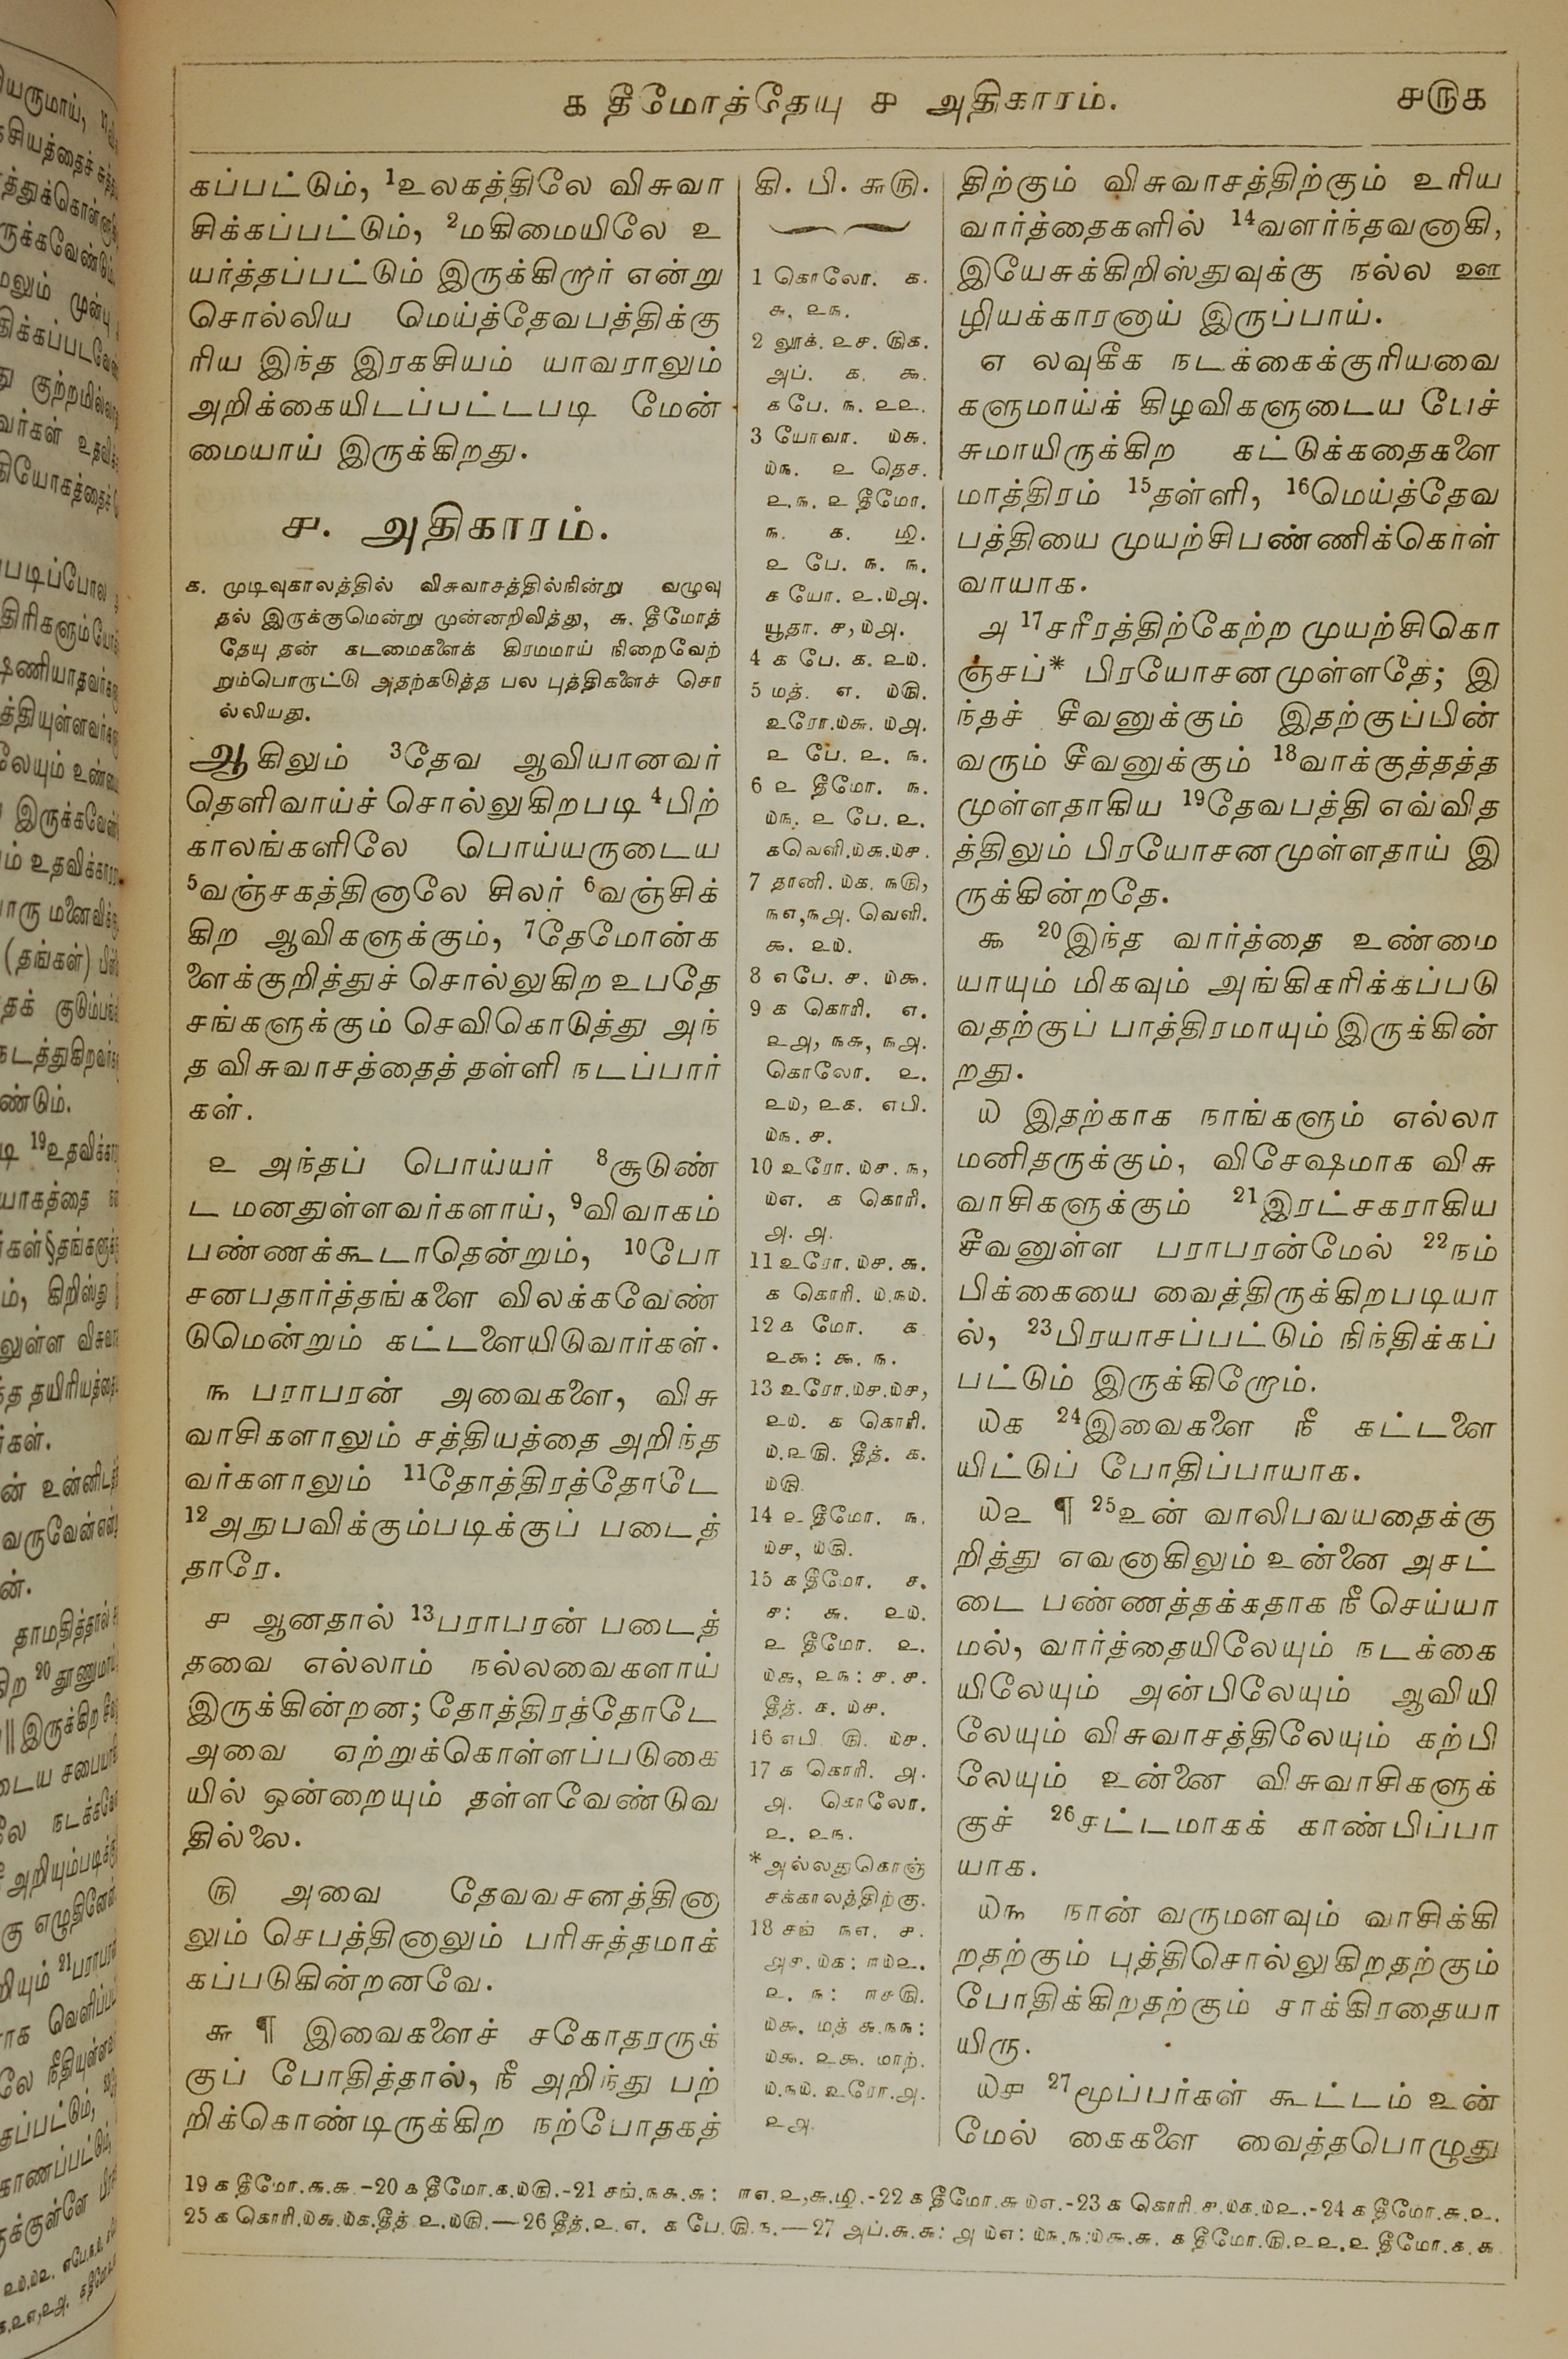 ௧ தீமோத்தேயு ௪ அதிகாரம்.
௪௫௧
கப்பட்டும், 1உலகத்திலே விசுவா
சிக்கப்பட்டும், 2மகிமையிலே உ
யர்த்தப்பட்டும் இருக்கிறார் என்று
சொல்லிய மெய்த்தேவபத்திக்கு
ரிய இந்த இரகசியம் யாவராலும்
அறிக்கையிடப்பட்டபடி மேன்
மையாய் இருக்கிறது.
௪. அதிகாரம்.
௧. முடிவுகாலத்தில் விசுவாசத்தில்நின்று வழுவு
தல் இருக்குமென்று முன்னறிவித்து, ௬. தீமோத்
தேயு தன் கடமைகளைக் கிரமமாய் நிறைவேற்
றும்பொருட்டு அதற்கடுத்த பல புத்திகளைச் சொ
ல்லியது.
ஆகிலும் 3தேவ ஆவியானவர்
தெளிவாய்ச் சொல்லுகிறபடி 4பிற்
காலங்களிலே பொய்யருடைய
5வஞ்சகத்தினாலே சிலர் 6வஞ்சிக்
கிற ஆவிகளுக்கும், 7தேமோன்க
ளைக்குறித்துச் சொல்லுகிற உபதே
சங்களுக்கும் செவிகொடுத்து அந்
த விசுவாசத்தைத் தள்ளி நடப்பார்
கள்.
௨ அந்தப் பொய்யர் 8சூடுண்
ட மனதுள்ளவர்களாய், 9விவாகம்
பண்ணக்கூடாதென்றும், 10போ
சனபதார்த்தங்களை விலக்கவேண்
டுமென்றும் கட்டளையிடுவார்கள்.
௩ பராபரன் அவைகளை, விசு
வாசிகளாலும் சத்தியத்தை அறிந்த
வர்களாலும் 11தோத்திரத்தோடே
12அநுபவிக்கும்படிக்குப் படைத்
தாரே.
௪ ஆனதால் 13பராபரன் படைத்
தவை எல்லாம் நல்லவைகளாய்
இருக்கின்றன; தோத்திரத்தோடே
அவை ஏற்றுக்கொள்ளப்படுகை
யில் ஒன்றையும் தள்ளவேண்டுவ
தில்லை.
௫ அவை தேவவசனத்தினா
லும் செபத்தினாலும் பரிசுத்தமாக்
கப்படுகின்றனவே.
௬ ¶ இவைகளைச் சகோதரருக்
குப் போதித்தால், நீ அறிந்து பற்
றிக்கொண்டிருக்கிற நற்போதகத்
கி. பி. ௬௫.
1 கொலோ. ௧.
௬, ௨௩.
2 லூக். ௨௪. ௫௧.
அப். ௧. ௯.
௧ பே. ௩. ௨௨.
3 யோவா. ௰௬.
௰௩. ௨ தெச.
௨.௩. ௨ தீமோ.
௩. ௧.
௨ பே. ௩. ௩.
௧ யோ. ௨.௰௮.
யூதா. ௪, ௰௮.
4 ௧ பே. ௧. ௨௰.
5 மத். ௭. ௰௫.
உரோ.௰௬. ௰௮.
௨ பே. ௨. ௩.
6 ௨ தீமோ. ௩.
௰௩. ௨ பே. ௨.
௧வெளி.௰௬.௰௪.
7 தானி. ௰௧. ௩௫,
௩௭,௩௮. வெளி.
௯. ௨௰.
8 எபே. ௪. ௰௯.
9 ௧ கொரி. ௭.
௨௮, ௩௬, ௩௮.
கொலோ. ௨.
௨௰, ௨௧. எபி.
௰௩. ௪.
10 உரோ. ௰௪. ௩,
௰௭. ௧ கொரி.
௮. ௮.
11 உரோ. ௰௪. ௬.
௧ கொரி. ௰.௩௰.
12 ௧ மோ. ௧
௨௯: ௯. ௩.
13 உரோ.௰௪.௰௪,
௨௰. ௧ கொரி.
௰.௨௫. தீத். ௧.
௰௫.
14 ௨ தீமோ. ௩.
௰௪, ௰௫.
15 ௧ தீமோ. ௪.
௪: ௬. ௨௰.
௨ தீமோ. ௨.
௰௬, ௨௩: ௪. ௪.
தீத். ௧. ௰௪.
16 எபி ௫. ௰௪.
17 ௧ கொரி. ௮.
௮. கொலோ.
௨. ௨௩.
*அல்லதுகொஞ்
சக்காலத்திற்கு.
18 சங் ௩௭. ௪.
௮௪. ௰௧: ௱௰௨.
௨. ௩: ௱௪௫.
௰௯. மத் ௬.௩௩:
௰௯. ௨௯. மாற்.
௰.௩௰. உரோ.௮.
௨௮.
திற்கும் விசுவாசத்திற்கும் உரிய
வார்த்தைகளில் 14வளர்ந்தவனாகி,
இயேசுக்கிறிஸ்துவுக்கு நல்ல ஊ
ழியக்காரனாய் இருப்பாய்.
௭ லவுகீக நடக்கைக்குரியவை
களுமாய்க் கிழவிகளுடைய பேச்
சுமாயிருக்கிற கட்டுக்கதைகளை
மாத்திரம் 15தள்ளி, 16மெய்த்தேவ
பத்தியை முயற்சிபண்ணிக்கொள்
வாயாக.
௮ 17சரீரத்திற்கேற்ற முயற்சிகொ
ஞ்சப்* பிரயோசனமுள்ளதே; இ
ந்தச் சீவனுக்கும் இதற்குப்பின்
வரும் சீவனுக்கும் 18வாக்குத்தத்த
முள்ளதாகிய 19தேவபத்தி எவ்வித
த்திலும் பிரயோசனமுள்ளதாய் இ
ருக்கின்றதே.
௯ 20இந்த வார்த்தை உண்மை
யாயும் மிகவும் அங்கிகரிக்கப்படு
வதற்குப் பாத்திரமாயும் இருக்கின்
றது.
௰ இதற்காக நாங்களும் எல்லா
மனிதருக்கும், விசேஷமாக விசு
வாசிகளுக்கும் 21இரட்சகராகிய
சீவனுள்ள பராபரன்மேல் 22நம்
பிக்கையை வைத்திருக்கிறபடியா
ல், 23பிரயாசப்பட்டும் நிந்திக்கப்
பட்டும் இருக்கிறோம்.
௰௧ 24இவைகளை நீ கட்டளை
யிட்டுப் போதிப்பாயாக.
௰௨ ¶ 25உன் வாலிபவயதைக்கு
றித்து எவனாகிலும் உன்னை அசட்
டை பண்ணத்தக்கதாக நீ செய்யா
மல், வார்த்தையிலேயும் நடக்கை
யிலேயும் அன்பிலேயும் ஆவியி
லேயும் விசுவாசத்திலேயும் கற்பி
லேயும் உன்னை விசுவாசிகளுக்
குச் 26சட்டமாகக் காண்பிப்பா
யாக.
௰௩ நான் வருமளவும் வாசிக்கி
றதற்கும் புத்திசொல்லுகிறதற்கும்
போதிக்கிறதற்கும் சாக்கிரதையா
யிரு.
௰௪ 27மூப்பர்கள் கூட்டம் உன்
மேல் கைகளை வைத்தபொழுது
19 ௧ தீமோ.௬.௬.-20 ௧ தீமோ.௧.௰௫.-21 சங்.௩௬.௬: ௱௭.௨,௬. -22 ௧ தீமோ.௬ ௰௭.-23 ௧ கொரி ௪.௰௧.௰௨.-24 ௧ தீமோ.௬.௨.
25 ௧ கொரி.௰௬.௰௧.தீத் ௨.௰௫.—26 தீத்.௨.௭. ௧ பே.௫.௩.—27 அப்.௬.௬: ௮ ௰௭: ௰௩.௩:௰௯.௬. ௧ தீமோ.௫.௨௨.௨ தீமோ.௧.௬